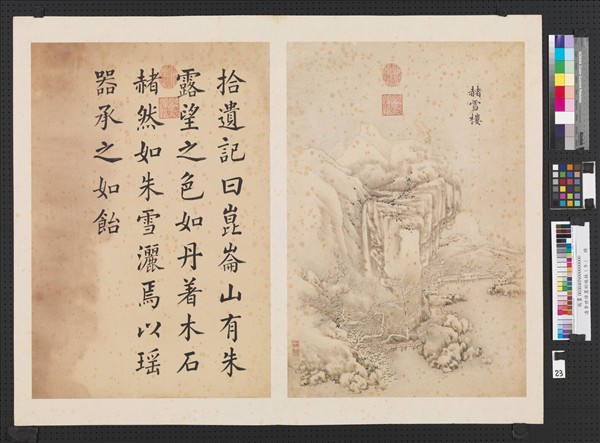 赭雪樓
拾遺記曰崑崙山有朱
露望之色如丹著木石
赭然如朱雪灑焉以瑶
器承之如飴
23